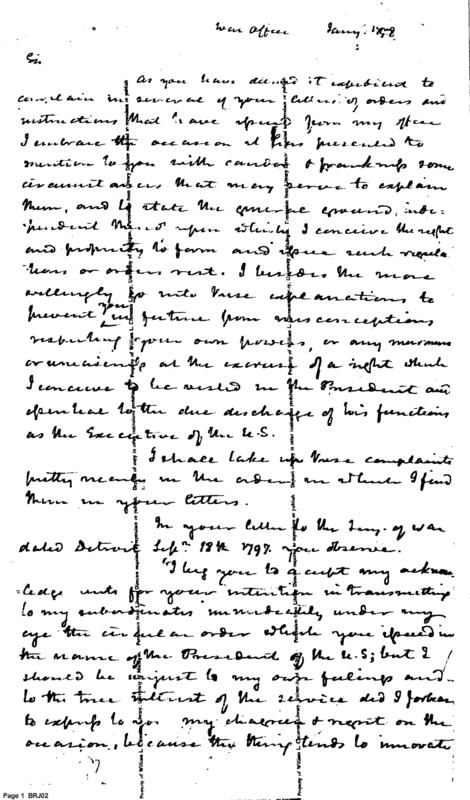 War Office Jany. 1798
Sir
As you have deemed it expedient to
complain in several of your letters, of orders and
instructions that have issued from my office
I embrace the occasion it has presented to
mention to you with candor & frankness some
circumstances that may serve to explain
them, and to state the general ground, inde-
pendent thereof upon which I conceive the right
and propriety to form and issue such regula
tions or orders rest. I besides the more
willingly go into these explanations to
prevent you in future from misconceptions
respecting your own powers, or any
or uneasiness at the exercise of a right which
I conceive to be vested in the President and
essential to the due discharge of his functions
as the Executive of the U.S.
I shall take up these complaints
pretty nearly in the order in which I find
them in your letters.
In your letter to the Secy. of War
dated Detroit Sepr. 18th 1797. you observe.
"I beg you to accept my acknow
=ledgements for your intention in transmitting
to my subordinates immediately under my
eye the circular order which you issued in
the name of the President of the U.S; but I
should be unjust to my own feelings and
to the true interest of the service did I forbear
to express to you my chagrin & regret on the
occasion, because the thing tends to innovate
Page 1 BRJ02